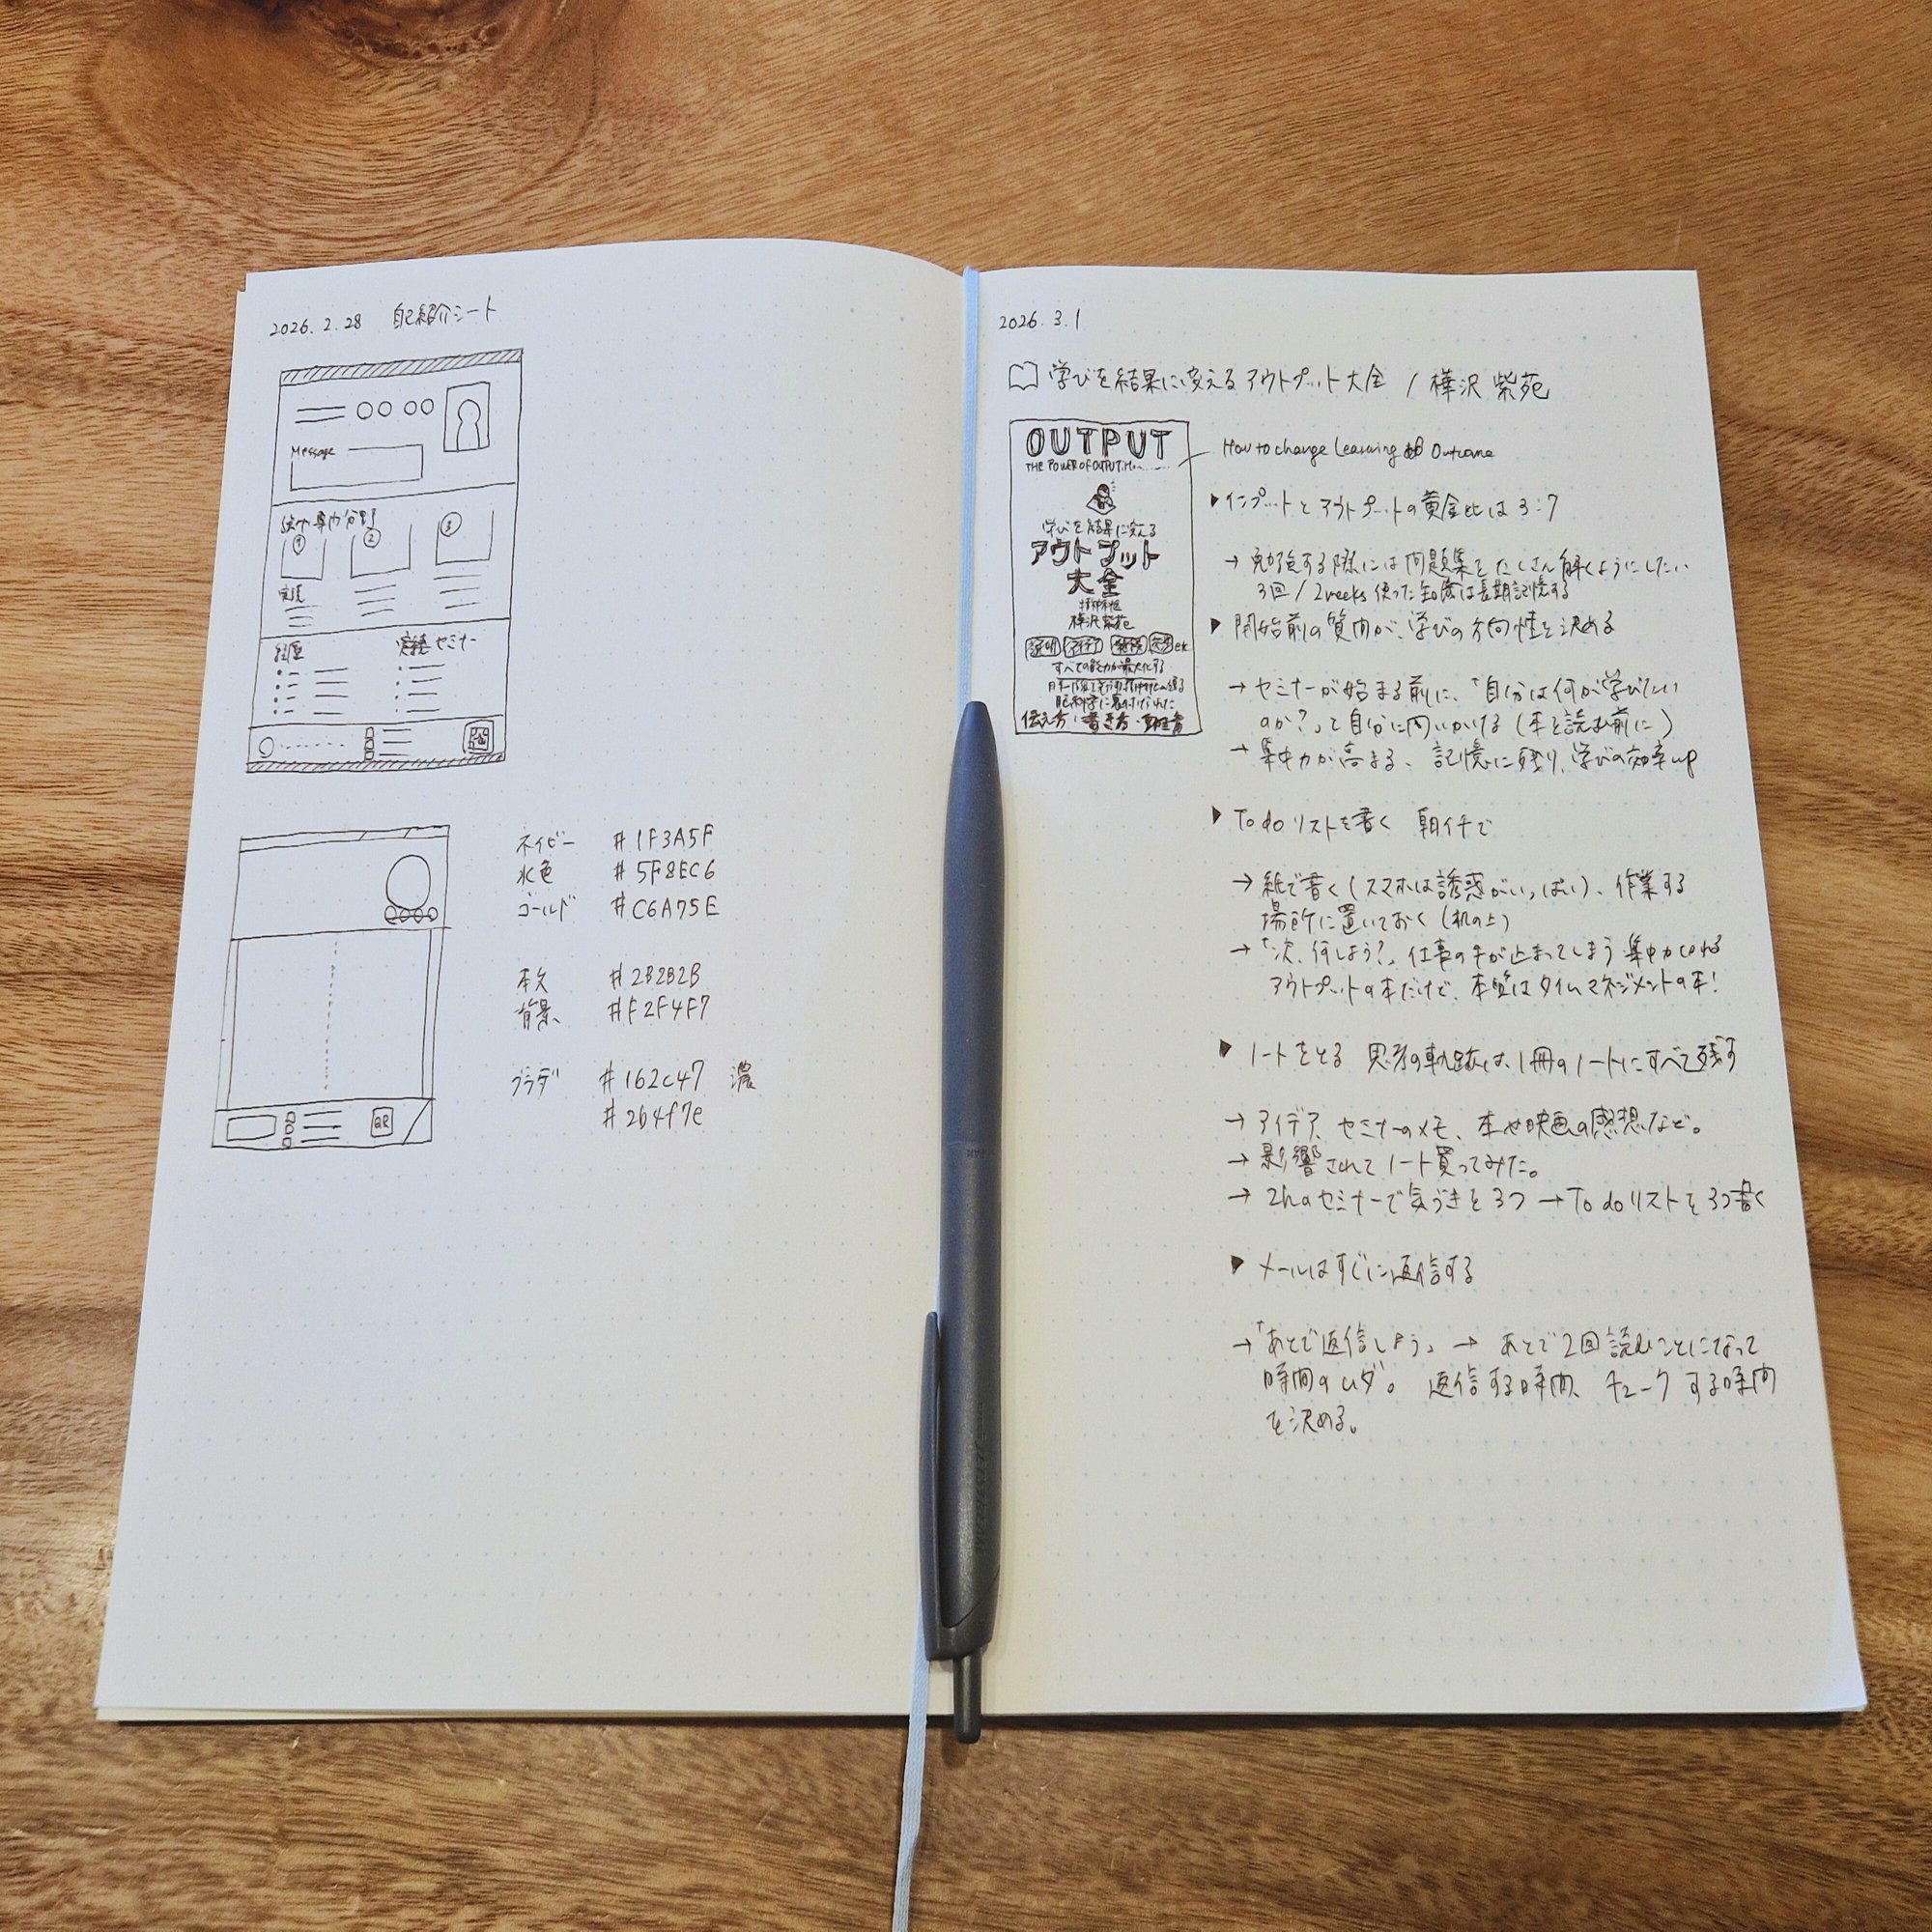 2026.2.28 自己紹介シート
Message
専門分野
① ② ③
実績
経歴
実績 セミナー
ネイビー #1F3A5F
水色 #5F8EC6
ゴールド #C6A75E
本文 #2B2B2B
背景 #F2F4F7
グラデ #162c47 濃
#2b4f7e
QR
2026.3.1
学びを結果に変えるアウトプット大全 / 樺沢 紫苑
OUTPUT
THE POWER OF OUTPUT:H
学びを結果に変える
アウトプット
大全
精神科医
樺沢紫苑
説明 アイデア etc
すべての能力が最大化する
伝え方・書き方・動き方
How to change Learning Outcome
▶インプットとアウトプットの黄金比は3:7
→ 勉強する際には問題集をたくさん解くようにしたい
3回/2weeks 使った知識は長期記憶する
▶開始前の質問が、学びの方向性を決める
→ セミナーが始まる前に、「自分は何が学びたい
のか?」と自分に問いかける(本を読む前に)
→ 集中力が高まる、記憶に残り、学びの効率up
▶To do リストを書く 朝イチで
→ 紙で書く(スマホは誘惑がいっぱい)、作業する
場所に置いておく(机の上)
→「次、何しよう?」仕事の手が止まってしまう 集中力切れる
アウトプットの本だけど、本質はタイムマネジメントの本!
▶ノートをとる 思考の軌跡は、1冊のノートにすべて残す
→ アイデア、セミナーのメモ、本や映画の感想など。
→ 影響されてノート買ってみた。
→ 2hのセミナーで気づきを3つ → To do リストを3つ書く
▶メールはすぐに返信する
→「あとで返信しよう」→ あとで2回読むことになって
時間のムダ。 返信する時間、チェックする時間
を決める。